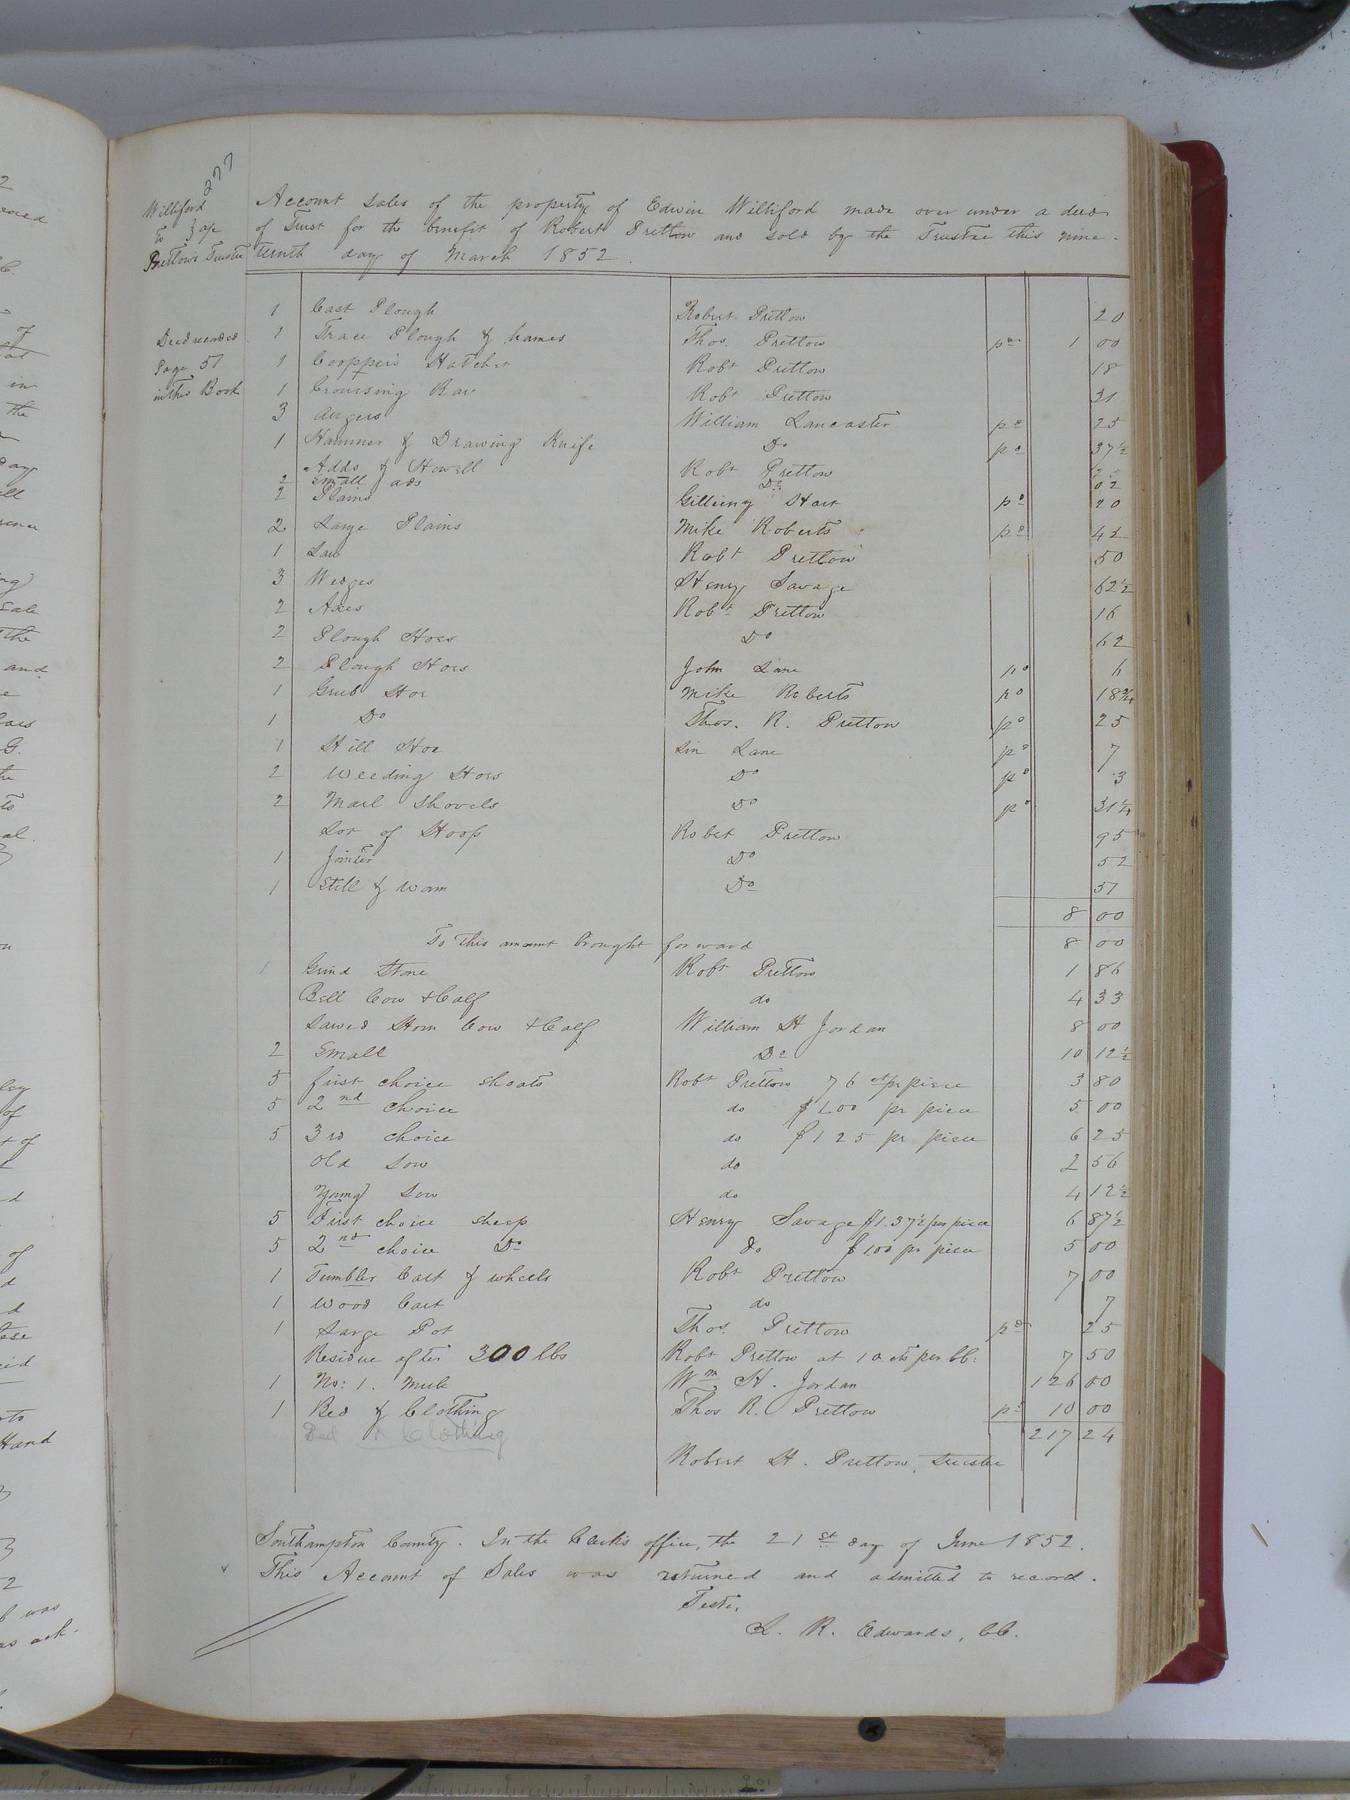 277
Williford
to } a/s
Prettow's Trustee
Account sales of the property of Edwin Williford made over under a deed
of Trust for the benefit of Robert Prettow and sold by the Trustee this nine-
teenth day of March 1852.
Deed recorded
Page 57
in this Book
1 Cast Plough Robert Prettow 20
1 Trace Plough & hames Thos. Prettow pd 1 00
1 Cooppers Hatchet Robt Prettow 18
1 Crousing Robt Prettow 31
3 augers William Lancaster pd 25
1 Hammer & Drawing Knife Do pd 37½
Adds & Howell Robt Prettow
2 small ads Do 02
2 Plains Gillieny Hart pd 20
2 Large Plains Mike Roberts pd 42
1 Saw Robt Prettow 50
3 Wedges Henry Savage 62½
2 Axes Robt Prettow 16
2 Plough Hoes Do 62
2 Plough Hoes John Lane pd 6
1 Grub Hoe Mike Roberts pd 18¾
1 Do Thos. R. Prettow pd 25
1 Hill Hoe Lin Lane pd 7
2 Weeding Hoes Do pd 3
2 Marl Shovels Do pd 31¼
Lot of Hoops Robert Prettow 95
1 Jointer Do 52
1 Still & Worm Do 51
8 00
To this amount brought forward 8 00
1 Grind Stone Robt Prettow 1 86
Bell Cow & Calf do 4 33
Sawed Horn Cow & Calf William H Jordan 8 00
2 Small Do 10 12½
5 first choice shoats Robt Prettow 76 cts pr piece 3 80
5 2nd choice do $1.00 pr piece 5 00
5 3rd choice do $1 25 pr piece 6 25
Old Sow do 2 56
Young Sow do 4 12½
5 First choice sheep Henry Savage $1.37½ per piece 6 87½
5 2nd choice Do do $1.00 pr piece 5 00
1 Tumbler Cart & wheels Robt Prettow 7 00
1 Wood Cart do 7
1 Large Pot Thos. Prettow pd 25
Residue after 300 lbs Robt Prettow at 10 cts per lb: 7 50
1 No: 1. Mule Wm H. Jordan 126 00
1 Bed & Clothing Thos R. Prettow pd 10 00
Bed & Clothing 217 24
Robert H. Prettow, Trustee
Southampton County. In the Clerk's office, the 21st day of June 1852.
This Account of Sales was returned and admitted to record.
Teste,
L. R. Edwards, CC.